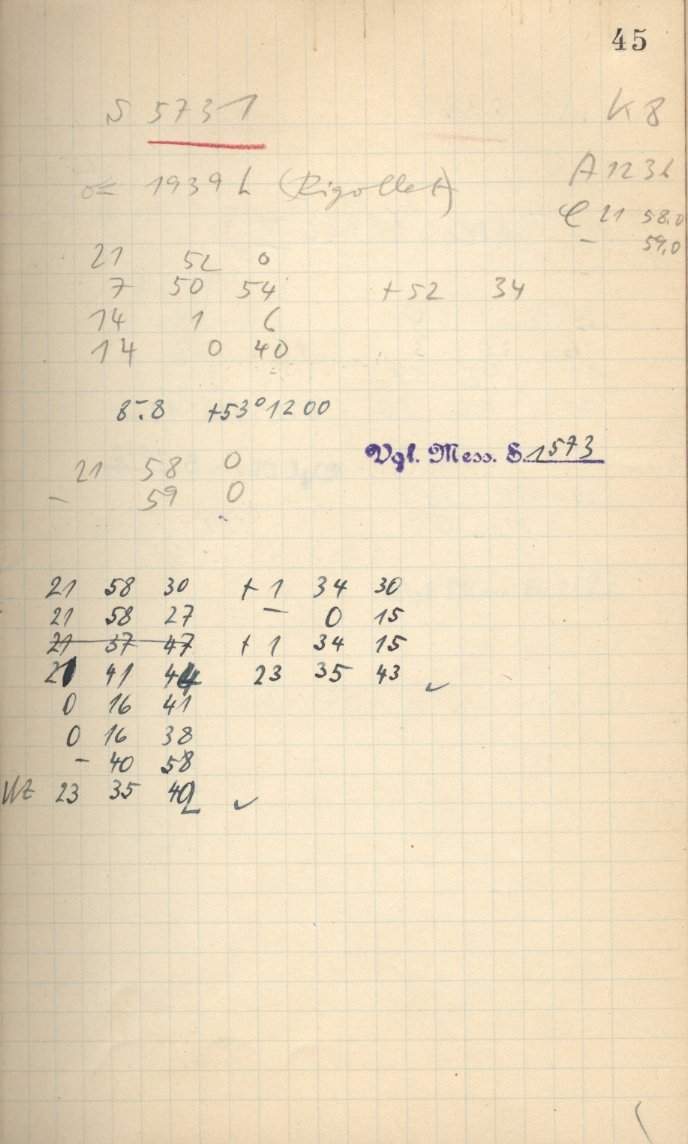 45
S 5731
K 8
A 123 h
☄ 1939 h (Rigollet)
21 58.0
21 52 0
– 59,0
7 50 54 +52 34
14 1 6
14 0 40
8.8 +53° 12 00
Vgl. Mess. S. 1573
21 58 0
– 59 0
21 58 30 +1 34 30
21 58 27 – 0 15
21 37 47 +1 34 15
21 41 44 23 35 43 ✓
0 16 41
0 16 38
– 40 58
WZ 23 35 40 ✓